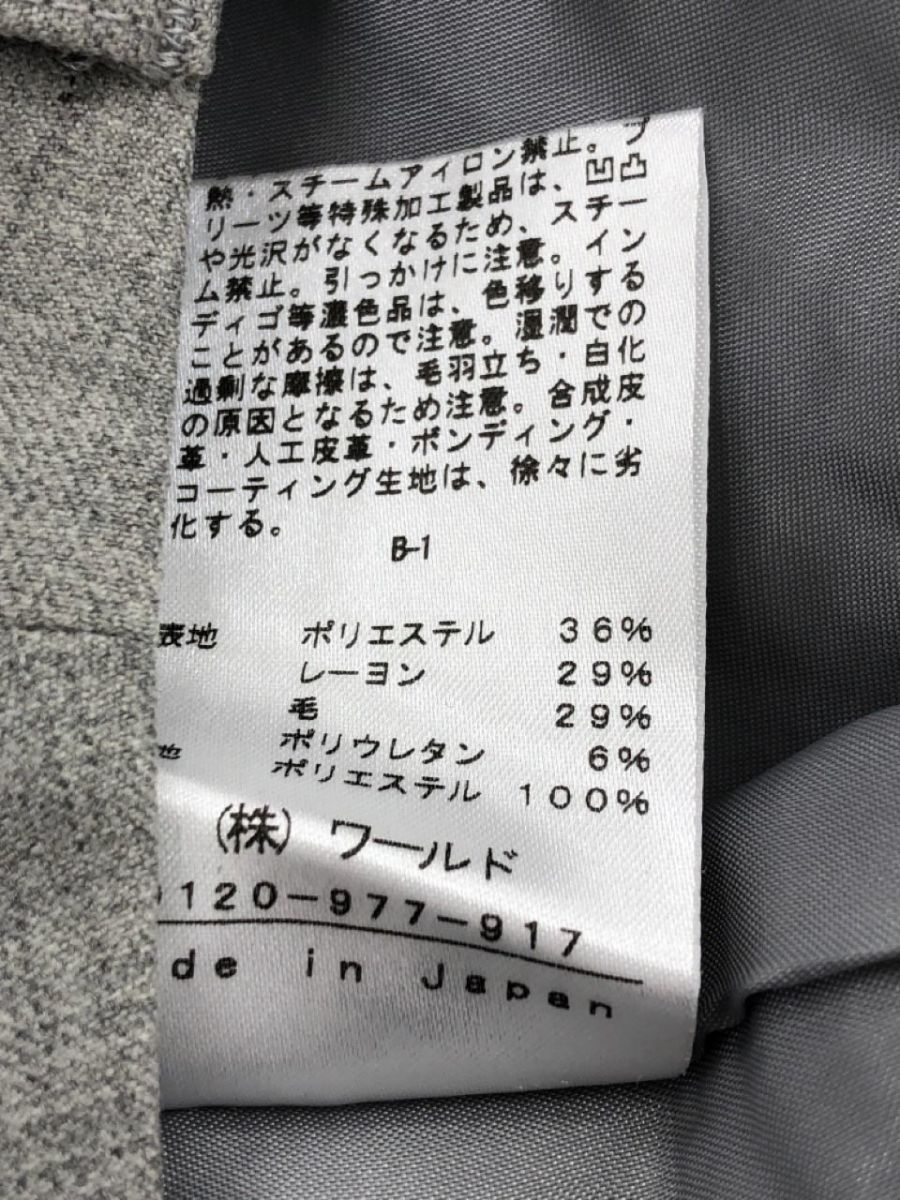 熱・スチームアイロン禁止。プ
リーツ等特殊加工製品は、凹凸
や光沢がなくなるため、スチー
ム禁止。引っかけに注意。イン
ディゴ等濃色品は、色移りする
ことがあるので注意。湿潤での
過剰な摩擦は、毛羽立ち・白化
の原因となるため注意。合成皮
革・人工皮革・ボンディング・
コーティング生地は、徐々に劣
化する。
B-1
表地 ポリエステル 36%
レーヨン 29%
毛 29%
ポリウレタン 6%
地 ポリエステル 100%
(株) ワールド
0120-977-917
de in Japan